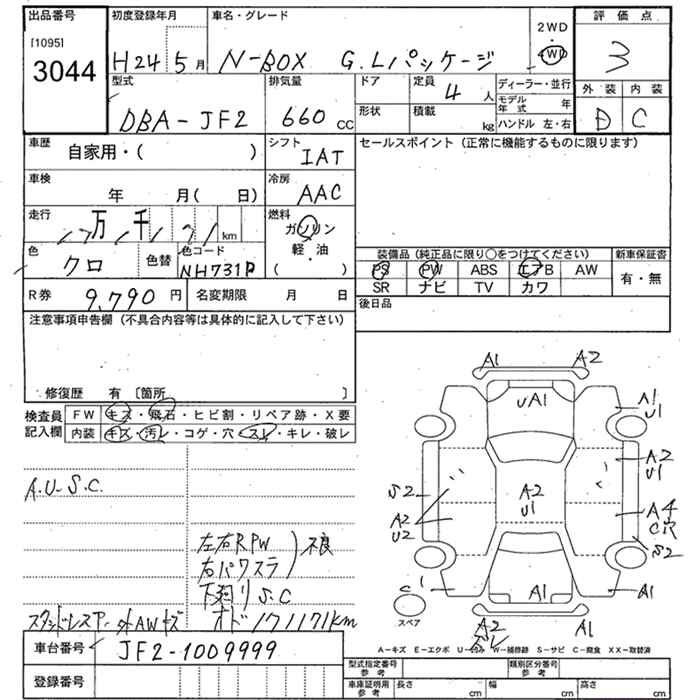 出品番号 [1095] 3044
初度登録年月 H24 5月
車名・グレード N-BOX G.Lパッケージ
2WD・4WD
評価点 3
型式 DBA-JF2
排気量 660cc
ドア
定員 4人
形状
積載 kg
ディーラー・並行
モデル年式 年
ハンドル 左・右
外装 D
内装 C
車歴 自家用・( )
シフト IAT
セールスポイント(正常に機能するものに限ります)
車検 年 月( 日)
冷房 AAC
走行 17万1千 71km
燃料 ガソリン・軽・油 ( )
色 クロ
色替
色コード NH731P
装備品(純正品に限り○をつけてください)
新車保証書
PS PW ABS エアB AW 有・無
SR ナビ TV カワ
R券 9,790円
名変期限 月 日
後日品
注意事項申告欄(不具合内容等は具体的に記入して下さい)
修復歴 有〔箇所 〕
検査員記入欄
FW キズ・飛石・ヒビ割・リペア跡・X要
内装 キズ・汚レ・コゲ・穴・スレ・キレ・破レ
A.U.S.C.
左右RPW
右パワスラ
不良
下廻りS.C
スタッドレスタイヤ
オド171171km
車台番号 JF2-1009999
登録番号
A1 A2
UA1
A1 U1
A2 U1
A2 U1
S2
A2 U2
A4 C穴
S2
C1
A1
A1
スペア
A2
A1
A-キズ E-エクボ U-凹み W-補修跡 S-サビ C-腐食 XX-取替済
型式指定番号 参考
類別区分番号 参考
車庫証明用 参考 長さ cm 幅 cm 高さ cm